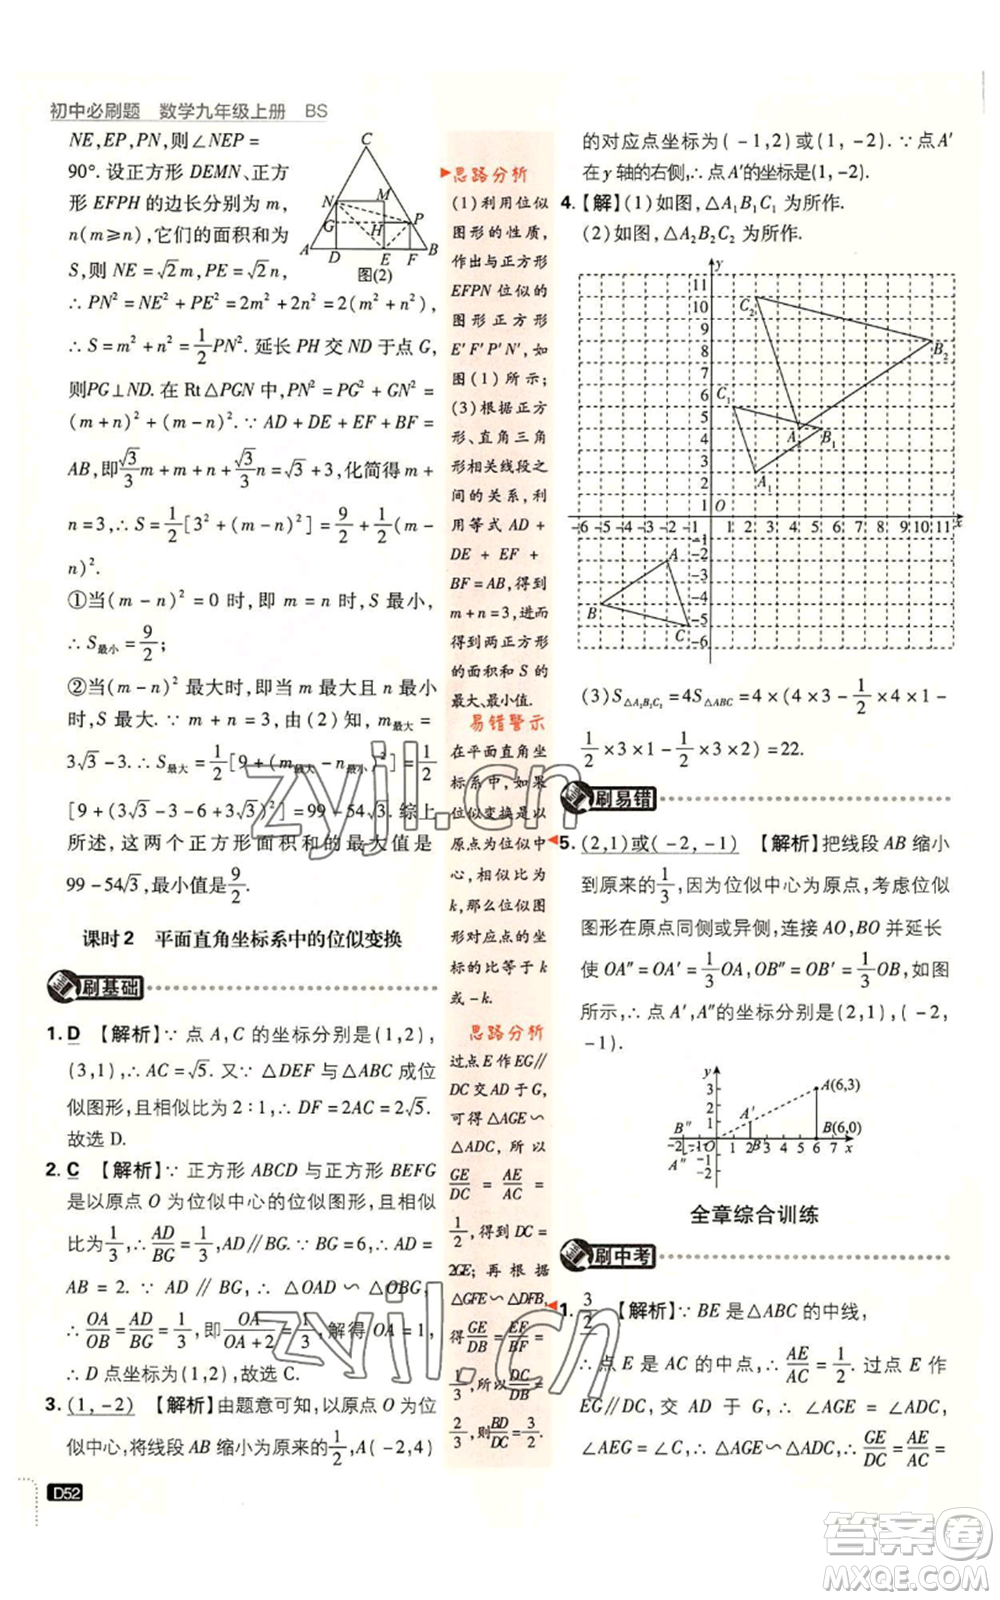 初中必刷题 数学九年级上册 BS
NE,EP,PN,则∠NEP=
90°. 设正方形 DEMN、正方
形 EFPH 的边长分别为 m,
n(m≥n),它们的面积和为
S,则 NE=√2m,PE=√2n,
C
N
M
G
H
P
A
D
E
F
B
图(2)
∴PN²=NE²+PE²=2m²+2n²=2(m²+n²),
∴S=m²+n²=1/2PN². 延长 PH 交 ND 于点 G,
则PG⊥ND. 在 Rt△PGN 中,PN²=PG²+GN²=
(m+n)²+(m-n)². ∵AD+DE+EF+BF=
AB,即√3/3m+m+n+√3/3n=√3+3,化简得 m+
n=3,∴S=1/2[3²+(m-n)²]=9/2+1/2(m-
n)².
①当(m-n)²=0 时,即 m=n 时,S 最小,
∴S最小=9/2;
②当(m-n)² 最大时,即 m 最大且 n 最小时,
S 最大. ∵m+n=3,由(2)知,m最大=
3√3-3. ∴S最大=1/2[9+(m最大-n最小)²]=1/2
[9+(3√3-3-6+3√3)²]=99-54√3. 综上
所述,这两个正方形面积和的最大值是
99-54√3,最小值是9/2.
课时2 平面直角坐标系中的位似变换
刷基础
1. D 【解析】∵点 A,C 的坐标分别是(1,2),
(3,1),∴AC=√5. 又∵△DEF 与△ABC 成位
似图形,且相似比为 2:1,∴DF=2AC=2√5.
故选 D.
2. C 【解析】∵正方形 ABCD 与正方形 BEFG
是以原点 O 为位似中心的位似图形,且相似
比为1/3,∴AD/BG=1/3. ∵BG=6,∴AD=
AB=2. ∵AD∥BG,∴△OAD∽△OBG,
∴OA/OB=AD/BG=1/3,即OA/(OA+2)=1/3,解得 OA=1,
∴D 点坐标为(1,2),故选 C.
3. (1,-2) 【解析】由题意可知,以原点 O 为位
似中心,将线段 AB 缩小为原来的1/2,A(-2,4)
D52
思路分析
(1)利用位似
图形的性质,
作出与正方形
EFPN 位似的
图形正方形
E′F′P′N′,如
图(1)所示;
(3)根据正方
形、直角三角
形相关线段之
间的关系,利
用等式 AD+
DE+EF+
BF=AB,得到
m+n=3,进而
得到两正方形
的面积和 S 的
最大、最小值.
易错警示
在平面直角坐
标系中,如果
位似变换是以
原点为位似中
心,相似比为
k,那么位似图
形对应点的坐
标的比等于 k
或-k.
思路分析
过点 E 作 EG∥
DC 交 AD 于 G,
可得△AGE∽
△ADC,所以
GE/DC=AE/AC=
1/2,得到 DC=
2GE;再根据
△GFE∽△DFB,
得GE/DB=EF/BF=
1/3,所以DC/DB=
2/3,则BD/DC=3/2.
的对应点坐标为(-1,2)或(1,-2). ∵点 A′
在 y 轴的右侧,∴点 A′的坐标是(1,-2).
4. 【解】(1)如图,△A₁B₁C₁ 为所作.
(2)如图,△A₂B₂C₂ 为所作.
y
11
10
9
8
7
6
5
4
3
2
1
O
-6 -5 -4 -3 -2 -1
1 2 3 4 5 6 7 8 9 10 11 x
-1
-2
-3
-4
-5
-6
C₂
B₂
C₁
A₂
B₁
A₁
A
B
C
(3)S△A₂B₂C₂=4S△ABC=4×(4×3-1/2×4×1-
1/2×3×1-1/2×2×3)=22.
刷易错
5. (2,1)或(-2,-1) 【解析】把线段 AB 缩小
到原来的1/3,因为位似中心为原点,考虑位似
图形在原点同侧或异侧,连接 AO,BO 并延长
使 OA″=OA′=1/3OA,OB″=OB′=1/3OB,如图
所示,点 A′,A″的坐标分别是(2,1),(-2,
-1).
y
3
2
1
A(6,3)
A′
B″
B′
B(6,0)
A″
O
1 2 3 4 5 6 7 x
全章综合训练
刷中考
1. 3/2 【解析】∵BE 是△ABC 的中线,
∴点 E 是 AC 的中点,∴AE/AC=1/2. 过点 E 作
EG∥DC,交 AD 于 G,∴∠AGE=∠ADC,
∠AEG=∠C,∴△AGE∽△ADC,∴GE/DC=AE/AC=
zyjl.cn
zyjl.cn
答案卷
MXQE.COM